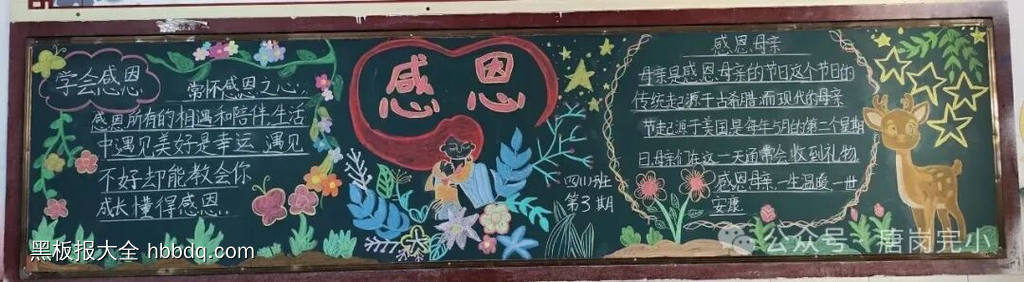 学会感恩
常怀感恩之心..
感恩所有的相遇和陪伴,生活
中遇见美好是幸运,遇见
不好却能教会你
成长懂得感恩..
感恩
四(1)班
第3期
感恩母亲
母亲是感恩母亲的节日这个节日的
传统起源于古希腊,而现代的母亲
节起源于美国是每年5月的第二个星期
日,母亲们在这一天通常会收到礼物
感恩母亲一生温暖一世
安康
黑板报大全 hbbdq.com
公众号·唐岗完小